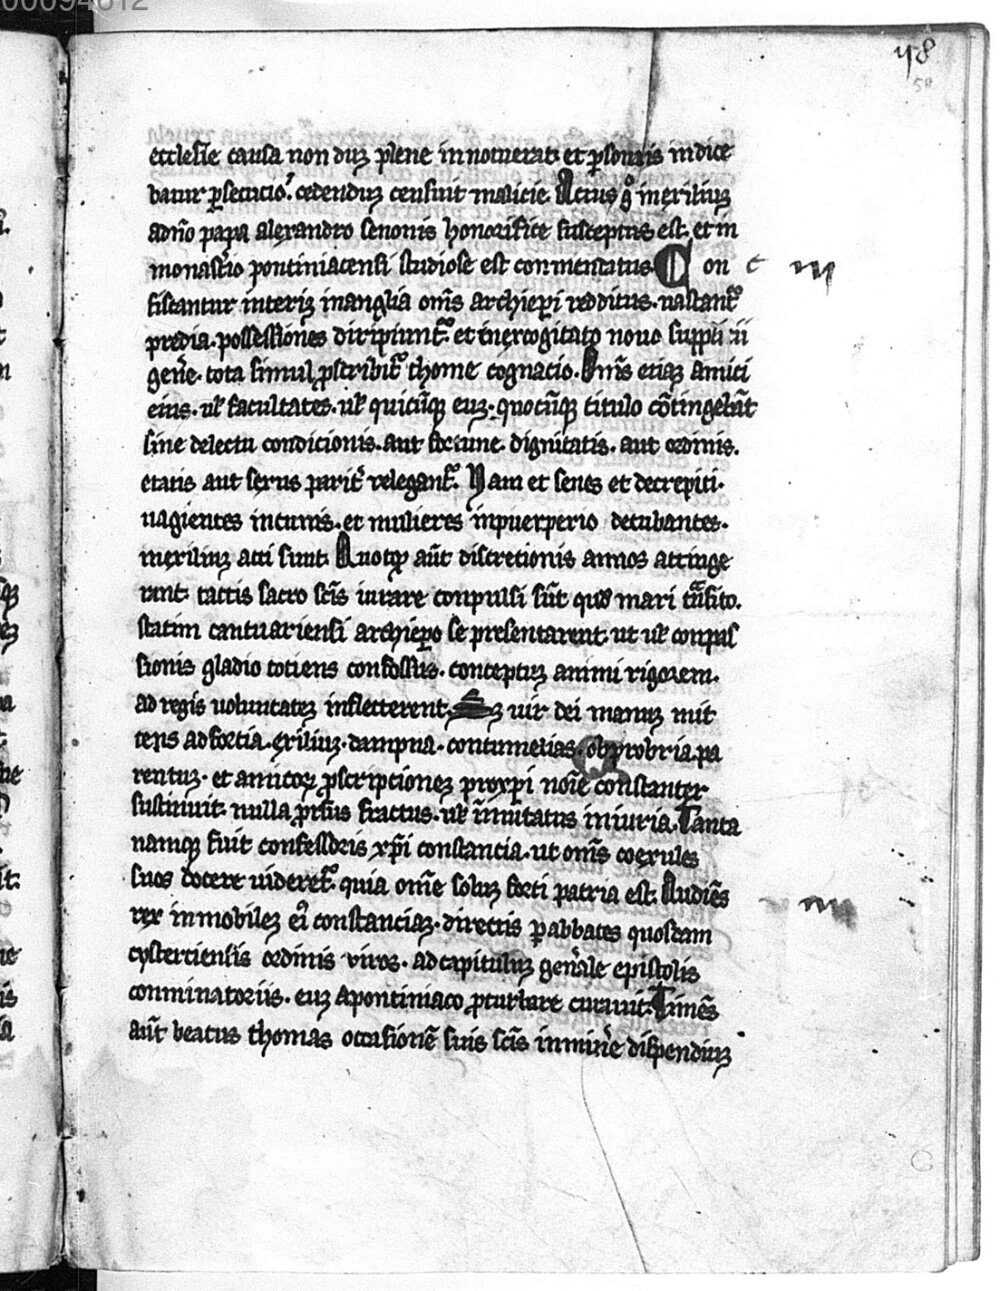 00094612
58
58
ecclesie causa non duȝ plene innotuerat· et p̱sonis indice
batur p̱secucio. cedenduȝ censuit malicie. Actus gͦ in exiliuȝ
a dño papa alexandro senonis honorifice susceptus est. et in
monast̓io pontiniacensi studiose est conmendatus. Con c iii
fiscantur interiȝ in anglia om̄s archiep̄i redditus. uastant᷑
predia. possessiones diripiunt᷑. et in excogitato nouo supplicii
gen̓e. tota simul ꝓscribit᷑ thome cognacio. Om̄s etiaȝ amici
eius. uł facultates. uł quicūqȝ euȝ. quocūqȝ titulo cōtingebāt
sine delectu condicionis. aut fortune. dignitatis. aut ordinis.
etatis aut sexus parit̓ relegant᷑. Nam et senes et decrepiti.
uagientes in cunis. et mulieres in puerperio decubantes.
in exiliuȝ acti sunt. Quotqȝ aūt discretionis annos attinge
rant tactis sacro scīs iurare conpulsi sūt quo mari tͣnsito.
statim cantuariensi archiep̄o se presentarent. ut uł conpas
sionis gladio totiens confossus. conceptuȝ animi rigorem.
ad regis uoluntateȝ inflecterent. ȝ uir dei manuȝ mit
tens ad fortia. exiliuȝ. dampna. contumelias. obprobria. pa
rentuȝ. et amicoꝝ ꝓscripcioneȝ pro xp̄i noīe constanter
sustinuit. nulla ꝓrsus fractus. uł īmutatus iniuria. Tanta
namqȝ fuit confessoris xp̄i constancia. ut om̄s coexules
suos docere uideret᷑. quia om̄e soluȝ forti patria est. Audiēs
rex inmobileȝ ei᷒ constanciaȝ. directis p̱ abbates quosdam
cysterciensis ordinis viros. ad capituluȝ gen̓ale epistolis
conminatoriis. euȝ a pontiniaco ꝓturbare curauit. Timēs
aūt beatus thomas occasionē suis scīs inmin̓e dispendiuȝ